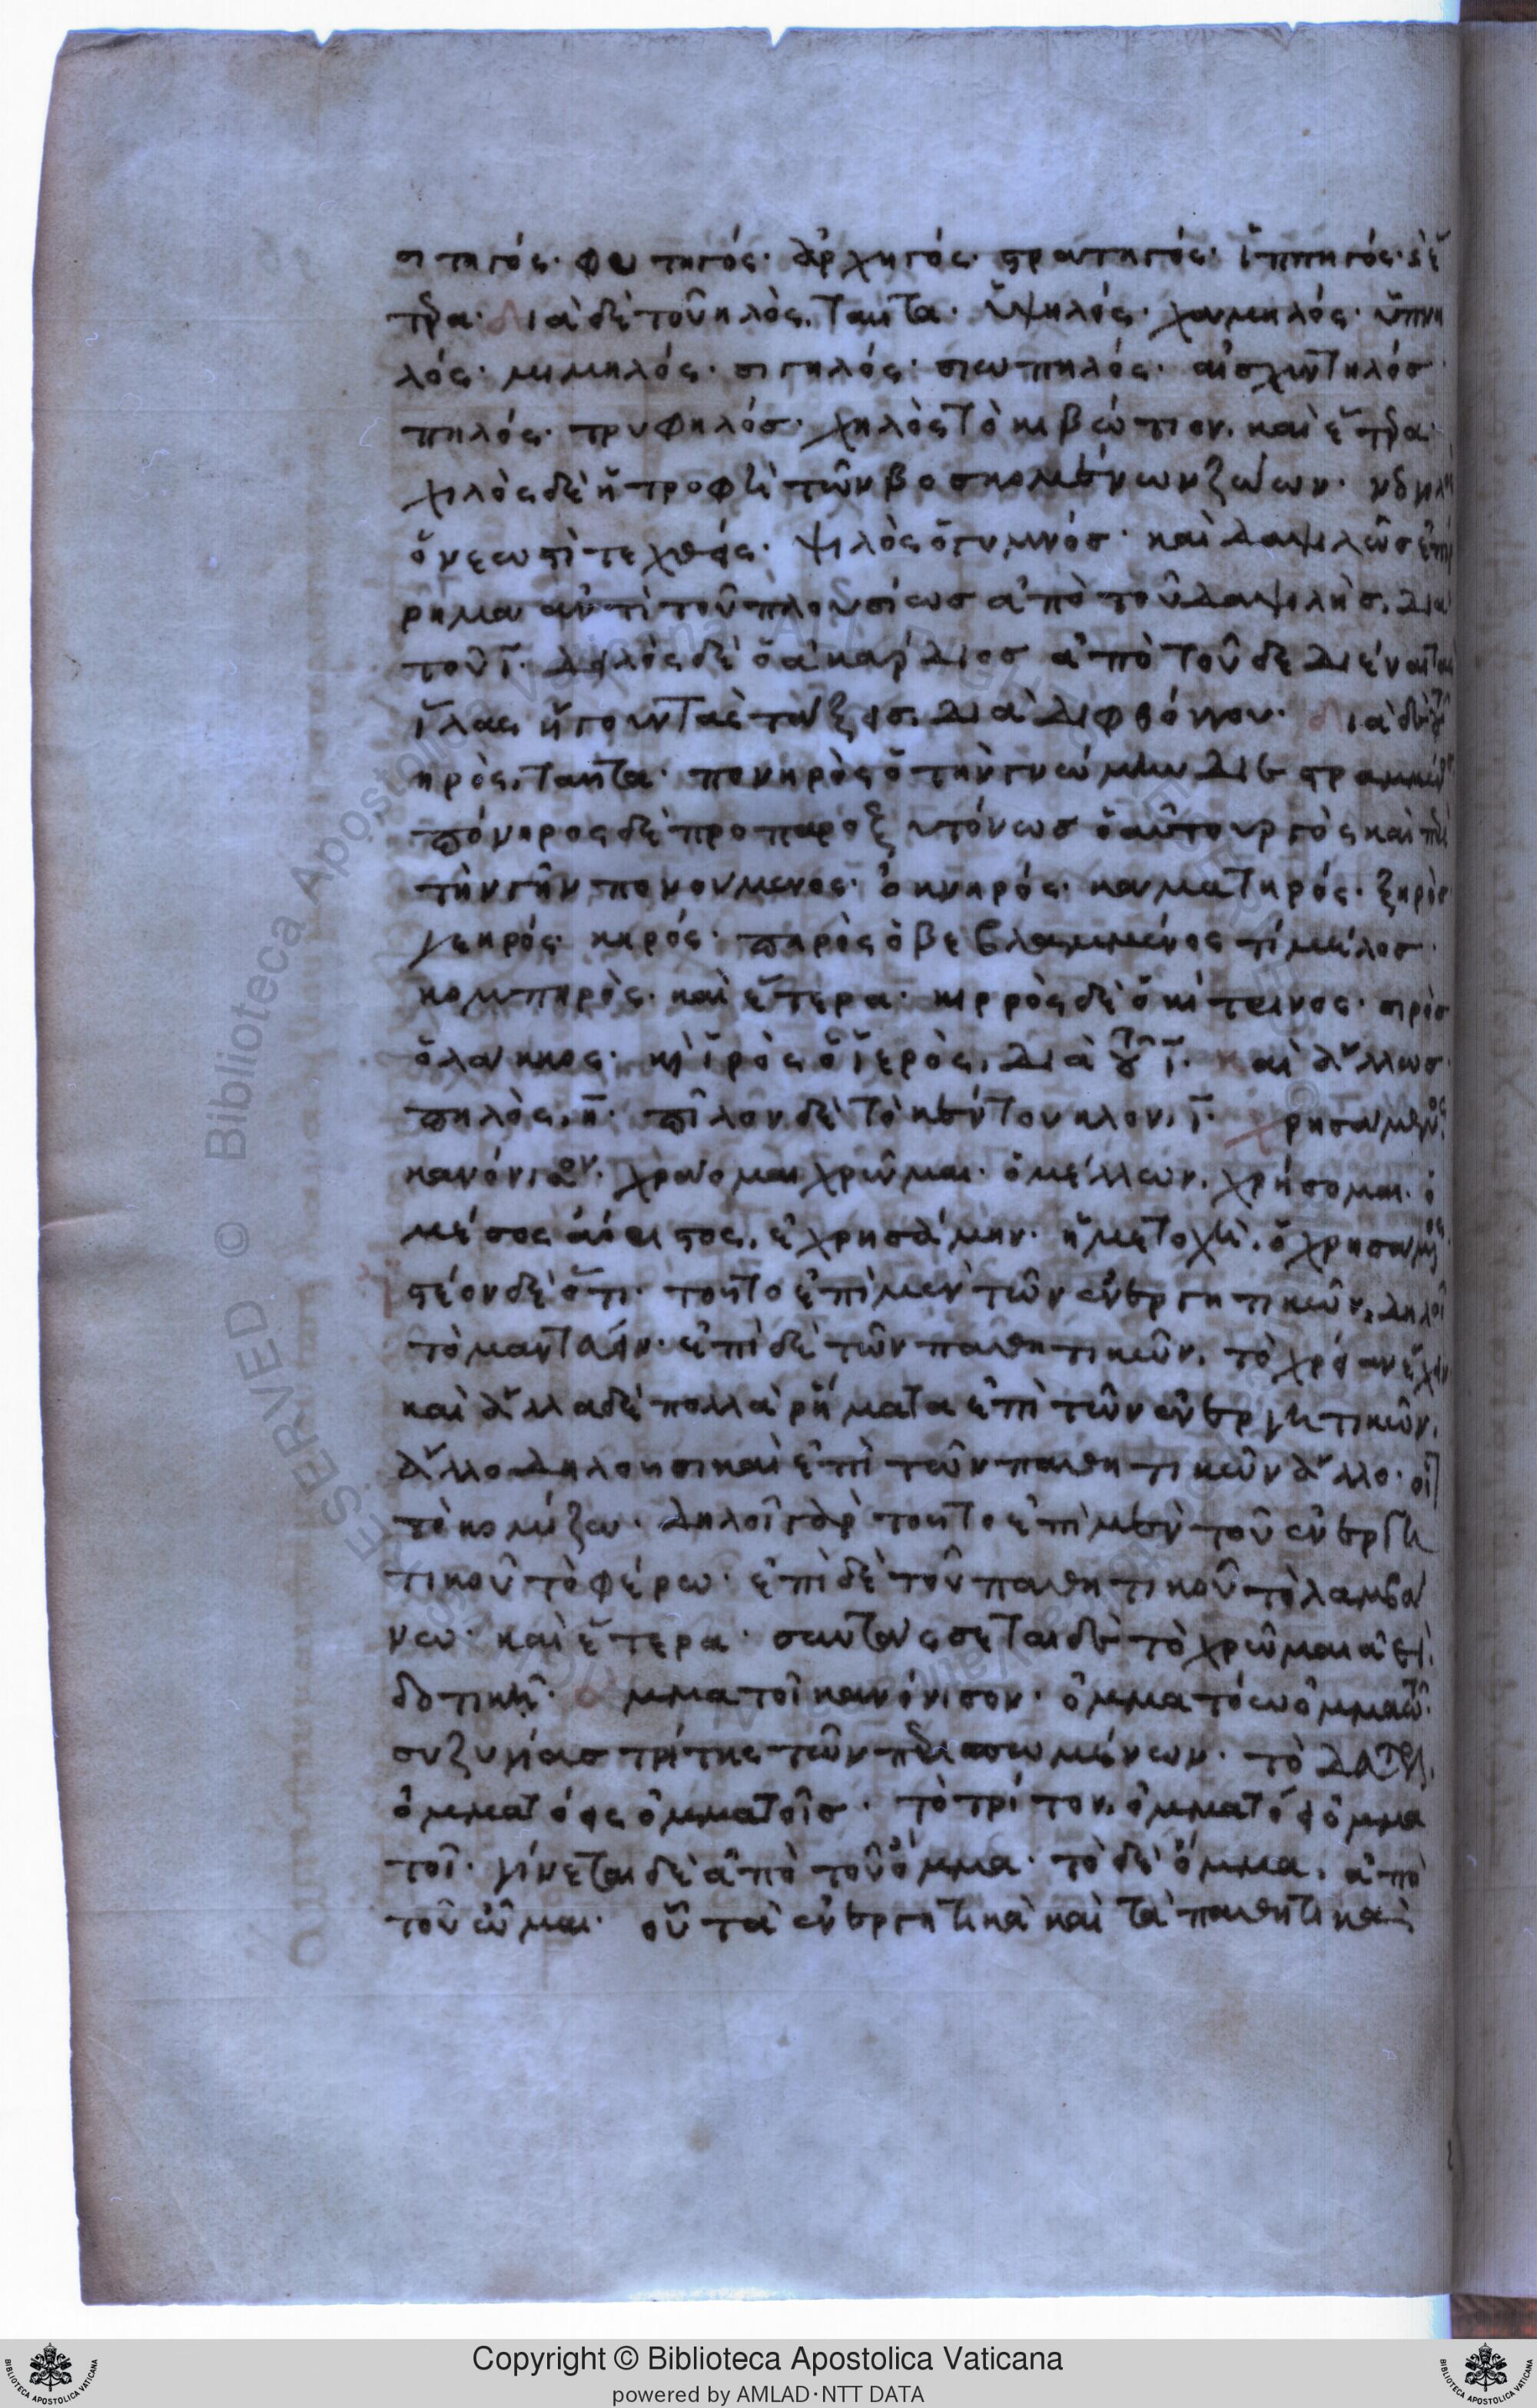 σιτηγός· φυτηγός· ἀρχηγός· στρατηγός· ἱππηγός· καὶ ἕ
τερα· Διὰ δὲ τοῦ ηλὸς, ταῦτα· ὑψηλός· χαμηλός· ὑπνη
λός· μιμηλός· σιγηλός· σιωπηλός· αἰσχυντηλόσ·
πηλός· τρυφηλόσ· χηλὸς τὸ κιβώτιον. καὶ ἕτερα·
χιλὸς δὲ ἡ τροφὴ τῶν βοσκομένων ζώων·
ὁ νεωστὶ τεχθείς· ψιλὸς ὁ γυμνόσ· καὶ δαψιλῶσ ἐπίρ
ρημα ἀντὶ τοῦ πλουσίωσ ἀπὸ τοῦ δαψιλὴσ. διὰ
τοῦ ϊ· δειλὸς δὲ ὁ ἀκάρδιοσ ἀπὸ τοῦ δεδιέναι τὰσ
ἴλας ἤγουν τὰς τάξεισ. διὰ διφθόγγου· Διὰ δὲ τοῦ
ηρὸς, ταῦτα· πονηρὸς ὁ τὴν γνώμην διεστραμμένοσ
πόνηρος δὲ προπαροξυτόνωσ ὁ αὐτουργὸς καὶ περὶ
τὴν γῆν πονουμενος· ὀκνηρός· καματηρός· ξηρὸσ
κηρός· πηρὸς ὁ βεβλαμμένος τί μέλοσ·
κομπηρὸς· καὶ ἕτερα· κιρρὸς δὲ ὁ κίτρινος· σιρὸσ
ὁ λάκκος· καὶ ἱρὸς ὁ ἱερὸς, διὰ τοῦ ϊ· Καὶ ἄλλωσ·
πηλὸς, η· πῖλον δὲ τὸ κέντουκλον, ϊ· Χρησάμενος
κανόνισον· χράομαι χρῶμαι· ὁ μέλλων. χρήσομαι· ὁ
μέσος ἀόριστος, ἐχρησάμην· ἡ μετοχὴ, ὁ χρησάμενος
στέον δὲ ὅτι τοῦτο ἐπὶ μὲν τῶν ἐνεργητικῶν, δηλοῖ
τὸ μαντεύειν· ἐπὶ δὲ τῶν παθητικῶν, τὸ χρείαν ἔχειν
καὶ ἄλλα δὲ πολλὰ ῥήματα ἐπὶ τῶν ἐνεργητικῶν,
ἄλλο δηλοῦσι καὶ ἐπὶ τῶν παθητικῶν ἄλλο· οἷον
τὸ κομίζω· δηλοῖ γὰρ τοῦτο ἐπὶ μὲν τοῦ ἐνεργη
τικοῦ τὸ φέρω· ἐπὶ δὲ τοῦ παθητικοῦ τὸ λαμβά
νω· καὶ ἕτερα· συντάσσεται δὲ τὸ χρῶμαι ἀεὶ
δοτικῆ· Ομματοῖ κανόνισον· ὀμματόω ὀμματῶ·
συζυγίασ τρίτης τῶν περισπωμένων· τὸ δεύτερον,
ὀμματόεις ὀμματοῖσ· τὸ τρίτον, ὀμματόει ὀμμα
τοῖ· γίνεται δὲ ἀπὸ τοῦ ὄμμα· τὸ δὲ ὄμμα, ἀπὸ
τοῦ ὦμμαι· οὗ τὰ ἐνεργητικὰ καὶ τὰ παθητικὰ